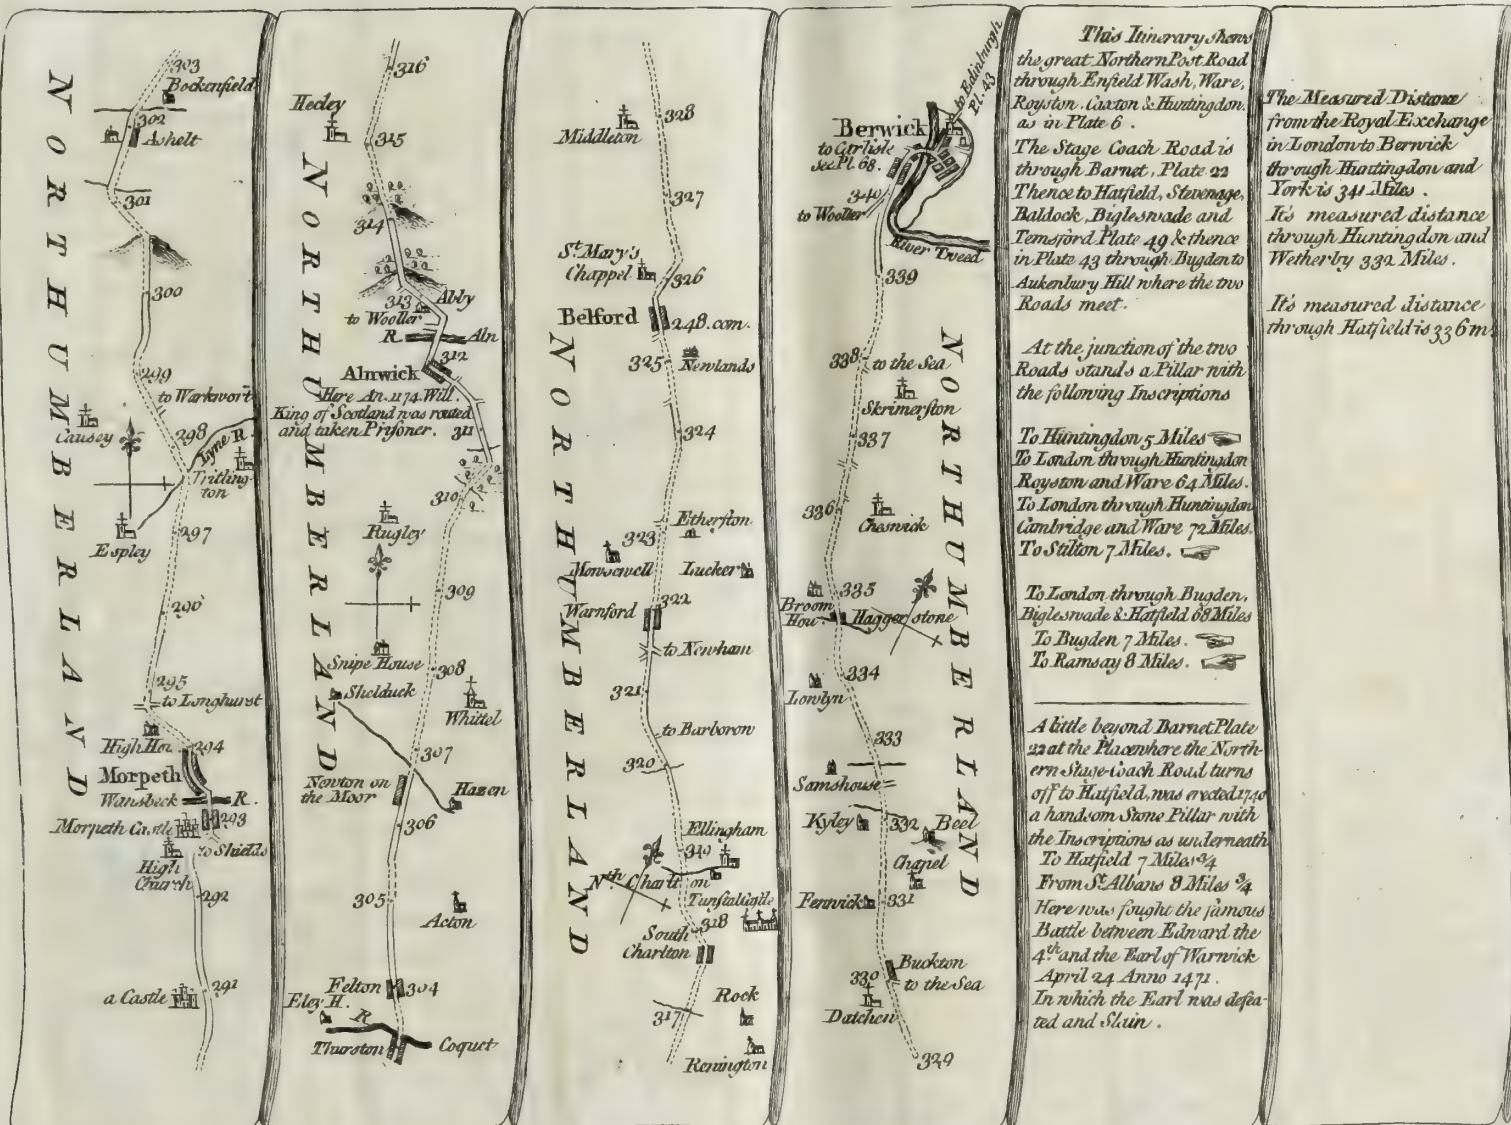 NORTHUMBERLAND
303
Bockenfield
302
Ashelt
301
300
299
to Warkwort
Causey
298
Lyne R.
Tritling-
ton
297
Espley
296
295
to Longhurst
High Hou.
294
Morpeth
Wansbeck R.
Morpeth Castle
293
to Shields
High
Church
292
a Castle
291
NORTHUMBERLAND
316
Hecley
315
314
313
Abby
to Wooller
R. Aln
312
Alnwick
Here An. 1174. Will.
King of Scotland was routed
and taken Prisoner.
311
310
Rugley
309
Snipe House
308
Shelduck
Whittel
307
Newton on
the Moor
Hazen
306
305
Acton
Felton
304
Eley H.
R
Thurston
Coquet
NORTHUMBERLAND
328
Middleton
327
St. Mary's
Chappel
326
Belford
248. com.
325
Newlands
324
Etherston
323
Lucker
Warnford
322
to Newham
321
to Barboron
320
Ellingham
319
Nth Charlton
Tunstal Castle
318
South
Charlton
Rock
317
Renington
NORTHUMBERLAND
to Edinburgh
Pl. 43
Berwick
to Carlisle
See Pl. 68.
340
to Wooller
River Tweed
339
338
to the Sea
Skrimerston
337
336
Cheswick
335
Broom
Hou.
Haggerstone
334
Lowlyn
333
Samshouse
Kyley
332
Beel
Chapel
Fenwick
331
Buckton
330
to the Sea
Datchen
329
This Itinerary shews
the great Northern Post Road
through Enfield Wash, Ware,
Royston, Caxton & Huntingdon.
as in Plate 6.
The Stage Coach Road is
through Barnet, Plate 22
Thence to Hatfield, Stevenage,
Baldock, Bigleswade and
Temsford Plate 49 & thence
in Plate 43 through Bugden to
Aukenbury Hill where the two
Roads meet.
At the junction of the two
Roads stands a Pillar with
the following Inscriptions
To Huntingdon 5 Miles
To London through Huntingdon
Royston and Ware 64 Miles.
To London through Huntingdon
Cambridge and Ware 72 Miles.
To Stilton 7 Miles.
To London through Bugden,
Bigleswade & Hatfield 68 Miles
To Bugden 7 Miles.
To Ramsay 8 Miles.
A little beyond Barnet Plate
22 at the Place where the North-
ern Stage-Coach Road turns
off to Hatfield, was erected 1740
a handsom Stone Pillar with
the Inscriptions as underneath
To Hatfield 7 Miles 3/4
From St. Albans 8 Miles 3/4
Here was fought the famous
Battle between Edward the
4th and the Earl of Warwick
April 24 Anno 1471.
In which the Earl was defea-
ted and Slain.
The Measured Distance
from the Royal Exchange
in London to Berwick
through Huntingdon and
York is 341 Miles.
It's measured distance
through Huntingdon and
Wetherby 332 Miles.
It's measured distance
through Hatfield is 336 m